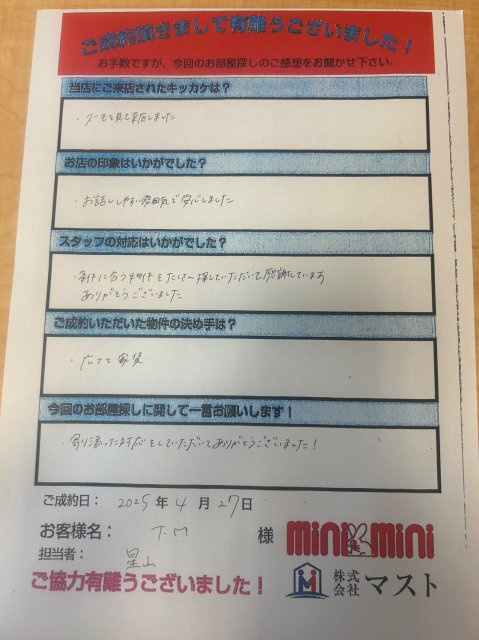 ご成約頂きまして有難うございました！
お手数ですが、今回のお部屋探しのご感想をお聞かせ下さい。
当店にご来店されたキッカケは？
・スーモを見て来店しました
お店の印象はいかがでした？
・お話ししやすい雰囲気で安心しました
スタッフの対応はいかがでした？
・条件に合う物件をたくさん探していただいて感謝しています
ありがとうございました
ご成約いただいた物件の決め手は？
・広さと家賃
今回のお部屋探しに関して一言お願いします！
・寄り添った対応をしていただいてありがとうございました！
ご成約日： 2025年 4月 27日
お客様名： T.M 様
mini mini
担当者： 星山
株式会社 マスト
ご協力有難うございました！